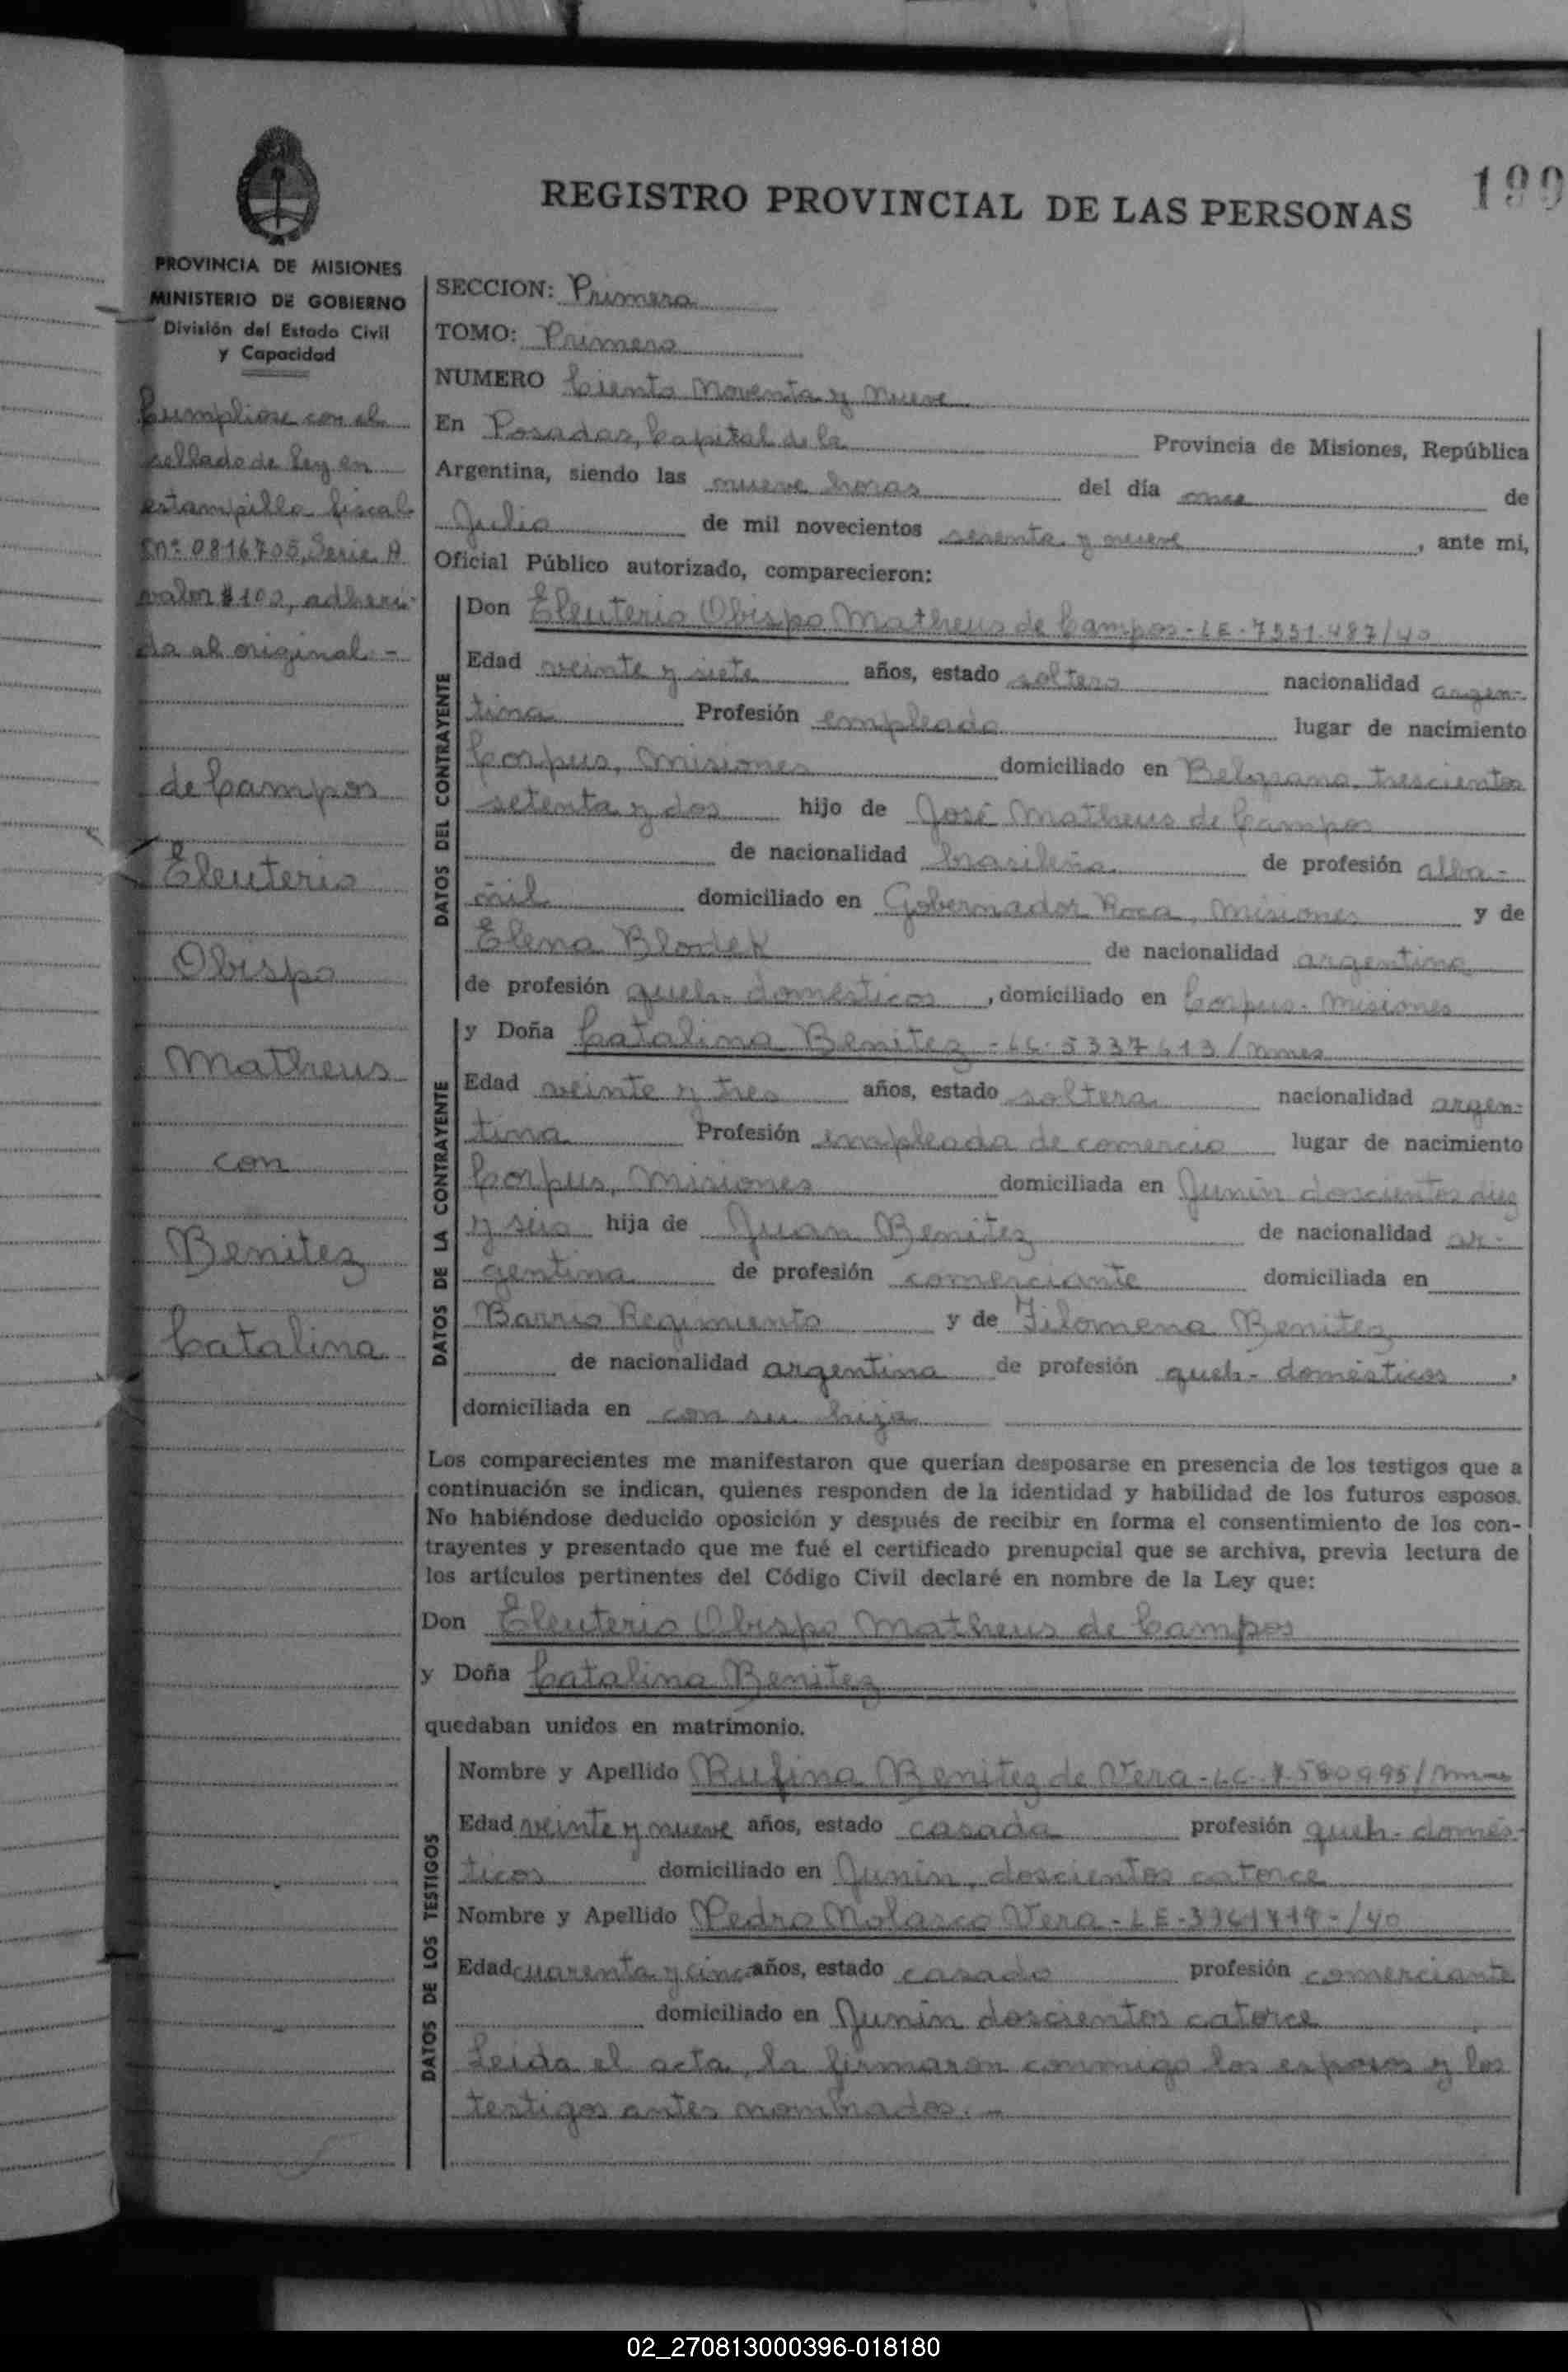 199
REGISTRO PROVINCIAL DE LAS PERSONAS
PROVINCIA DE MISIONES
MINISTERIO DE GOBIERNO
División del Estado Civil
y Capacidad
Cumpliose con el
sellado de Ley en
estampilla fiscal
Nº 0816705, Serie A
valor $ 100, adheri-
da al original.-
de Campos
Eleuterio
Obispo
Matheus
con
Benitez
Catalina
SECCION: Primera
TOMO: Primero
NUMERO Ciento Noventa y Nueve
En Posadas, Capital de la Provincia de Misiones, República
Argentina, siendo las nueve horas del día once de
Julio de mil novecientos sesenta y nueve, ante mi,
Oficial Público autorizado, comparecieron:
DATOS DEL CONTRAYENTE
Don Eleuterio Obispo Matheus de Campos - LE - 7551487/40
Edad veinte y siete años, estado soltero nacionalidad argen-
tina Profesión empleado lugar de nacimiento
Corpus, Misiones domiciliado en Belgrano, trescientos
setenta y dos hijo de José Matheus de Campos
de nacionalidad brasileña de profesión alba-
ñil domiciliado en Gobernador Roca, Misiones y de
Elena Blodek de nacionalidad argentina
de profesión queh- domésticos, domiciliado en Corpus- Misiones
DATOS DE LA CONTRAYENTE
y Doña Catalina Benitez - LC- 5337613/mnes
Edad veinte y tres años, estado soltera nacionalidad argen-
tina Profesión empleada de comercio lugar de nacimiento
Corpus, Misiones domiciliada en Junín doscientos diez
y seis hija de Juan Benitez de nacionalidad ar-
gentina de profesión comerciante domiciliada en
Barrio Regimiento y de Filomena Benitez
de nacionalidad argentina de profesión queh- domésticos,
domiciliada en con su hija
Los comparecientes me manifestaron que querían desposarse en presencia de los testigos que a
continuación se indican, quienes responden de la identidad y habilidad de los futuros esposos.
No habiéndose deducido oposición y después de recibir en forma el consentimiento de los con-
trayentes y presentado que me fué el certificado prenupcial que se archiva, previa lectura de
los artículos pertinentes del Código Civil declaré en nombre de la Ley que:
Don Eleuterio Obispo Matheus de Campos
y Doña Catalina Benitez
quedaban unidos en matrimonio.
DATOS DE LOS TESTIGOS
Nombre y Apellido Rufina Benitez de Vera - LC-
Edad veinte y nueve años, estado casada profesión queh- domés-
ticos domiciliado en Junín, doscientos catorce
Nombre y Apellido Pedro Nolasco Vera - LE -
Edad cuarenta y cinco años, estado casado profesión comerciante
domiciliado en Junín doscientos catorce
Leida el acta, la firmaron conmigo los esposos y los
testigos antes nombrados.-
02_270813000396-018180